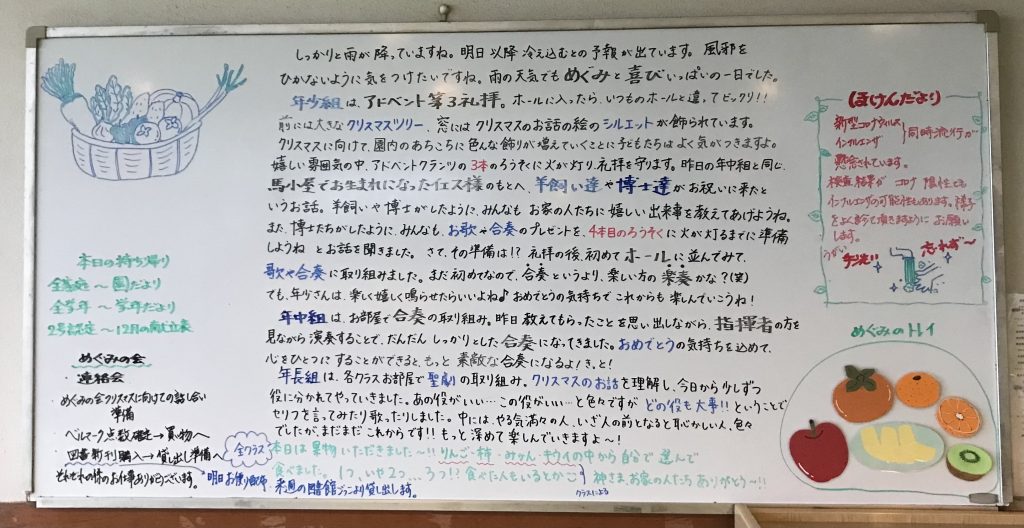 しっかりと雨が降っていますね。明日以降冷え込むとの予報が出ています。風邪を
ひかないように気をつけたいですね。雨の天気でもめぐみと喜びいっぱいの一日でした。
年少組は、アドベント第3礼拝。ホールに入ったら、いつものホールと違ってビックリ!!
前には大きなクリスマスツリー、窓にはクリスマスのお話の絵のシルエットが飾られています。
クリスマスに向けて、園内のあちこちに色んな飾りが増えていくことに子どもたちはよく気がつきますよ。
嬉しい雰囲気の中、アドベントクランツの3本のろうそくに火が灯り、礼拝を守ります。昨日の年中組と同じ、
馬小屋でお生まれになったイエス様のもとへ、羊飼い達や博士達がお祝いに来たと
いうお話。羊飼いや博士がしたように、みんなもお家の人たちに嬉しい出来事を教えてあげようね。
また、博士たちがしたように、みんなも、お歌や合奏のプレゼントを、4本目のろうそくに火が灯るまでに準備
しようねとお話を聞きました。さて、その準備は!?礼拝の後、初めてホールに並んでみて、
歌や合奏に取り組みました。まだ初めてなので、合奏というより、楽しい方の楽奏かな?(笑)
でも、年少さんは、楽しく嬉しく鳴らせたらいいよね♪おめでとうの気持ちでこれからも楽しんでいこうね!
年中組は、お部屋で合奏の取り組み。昨日教えてもらったことを思い出しながら、指揮者の方を
見ながら演奏することで、だんだんしっかりした合奏になってきました。おめでとうの気持ちを込めて、
心をひとつにすることができると、もっと素敵な合奏になるよ!きっと!
年長組は、各クラスお部屋で聖劇の取り組み。クリスマスのお話を理解し、今日から少しずつ
役に分かれてやっていきました。あの役がいい…この役がいい…と色々ですがどの役も大事!!ということで
セリフを言ってみたり歌ったりしました。中には、やる気満々の人、いざ人の前となると恥ずかしい人、色々
でしたが、まだまだこれからです!!もっと深めて楽しんでいきますよ~!
全クラス
本日は果物いただきました~!!りんご・柿・みかん・キウイの中から自分で選んで
食べました。1つ、いや2つ…3つ!!食べた人もいるとか
クラスによる
神さま、お家の人たちありがとう~!!
本日の持ち帰り
全家庭~園だより
全学年~学年だより
2号認定~12月の献立表
めぐみの会
・連絡会
めぐみの会クリスマスに向けての話し合い
準備
ベルマーク点数確定→買物へ
図書新刊購入→貸し出し準備へ
それぞれの係のお仕事ありがとうございます。
明日お便り配布
来週の臨館より貸し出します。
ほけんだより
新型コロナウィルス
インフルエンザ
同時流行が
懸念されています。
検査結果がコロナ陽性でも
インフルエンザの可能性もあります。様子
をよく診て頂きますようにお願い
します。
うがい
手洗い
忘れず~
めぐみのトレイ